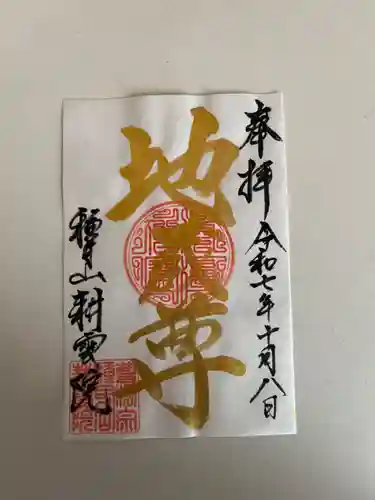 奉拝 令和七年十月八日
地天尊
種月山耕雲院